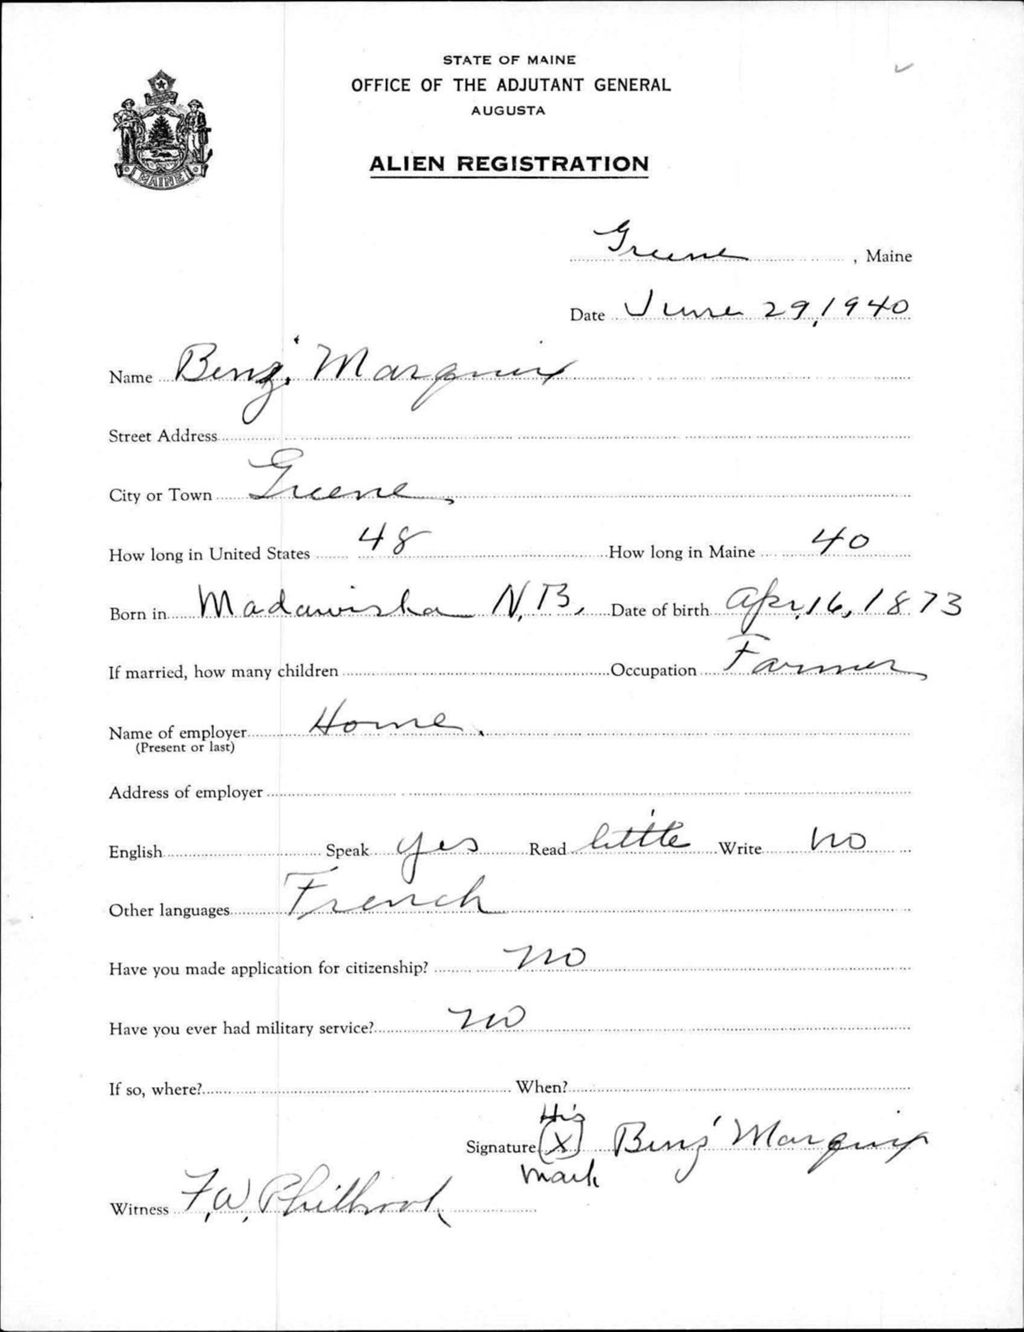 STATE OF MAINE
OFFICE OF THE ADJUTANT GENERAL
AUGUSTA
ALIEN REGISTRATION
MAINE
Greene, Maine
Date June 29, 1940
Name Benj. Marquix
Street Address
City or Town Greene,
How long in United States 48 How long in Maine 40
Born in Madawiska N.B. Date of birth Apr. 16, 1873
If married, how many children Occupation Farmer
Name of employer Home.
(Present or last)
Address of employer
English Speak yes Read little Write no
Other languages French
Have you made application for citizenship? no
Have you ever had military service? no
If so, where? When?
His
Signature (X) Benj Marquix
mark
Witness F. W. Philbrook